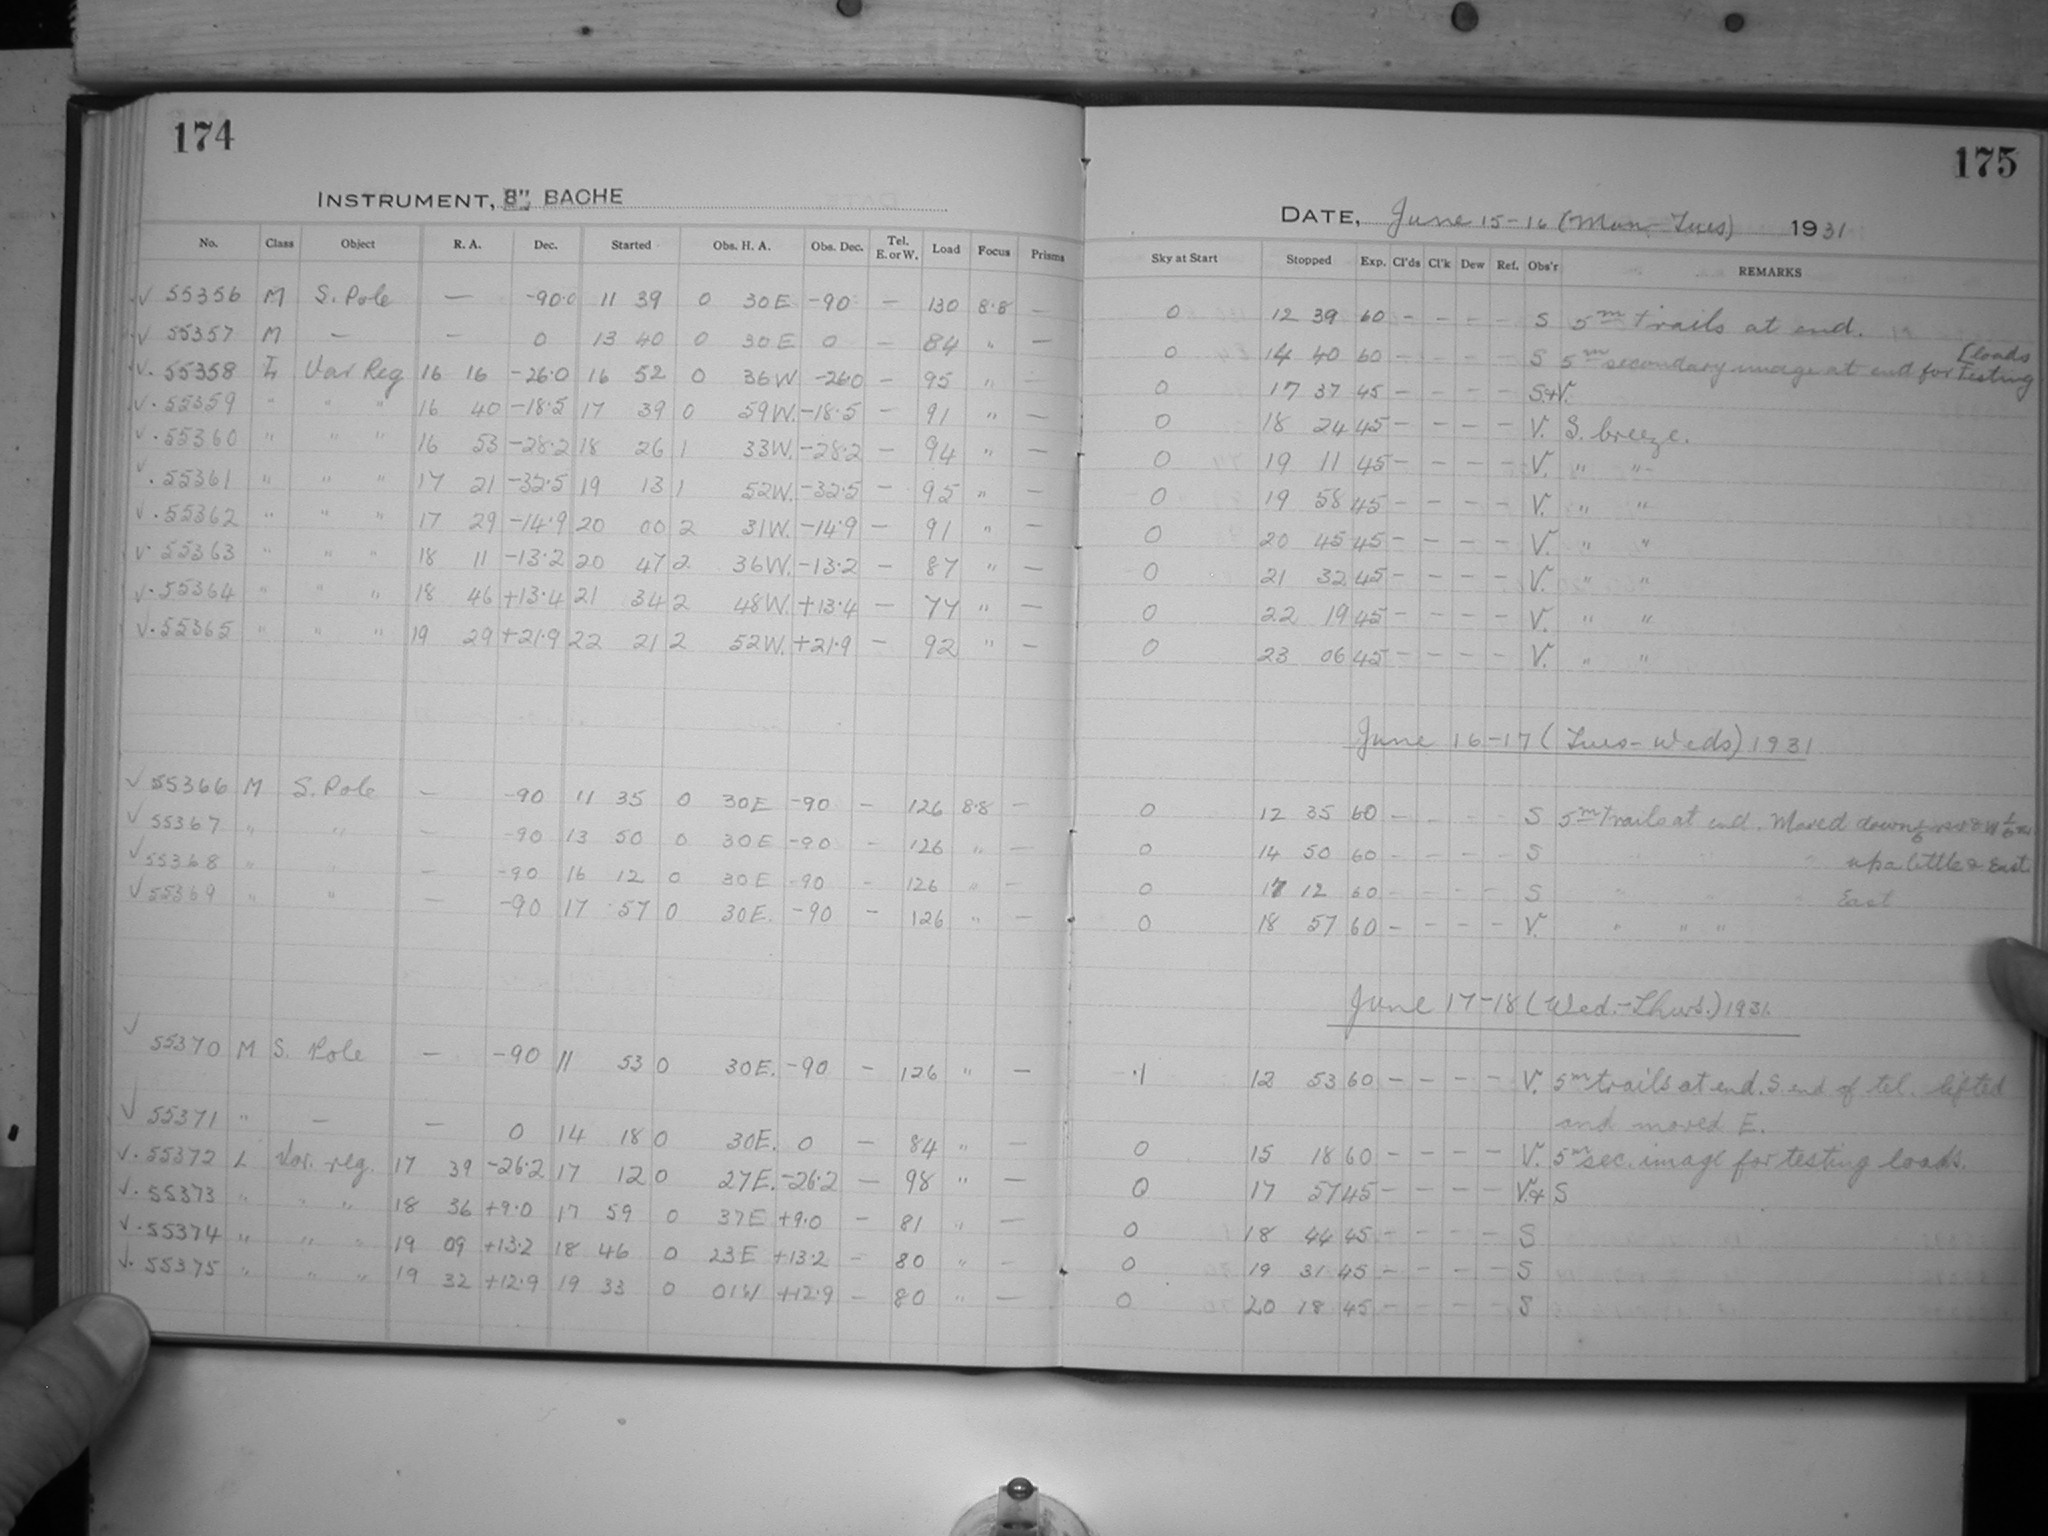 174
INSTRUMENT, 8" BACHE
No. Class Object R. A. Dec. Started Obs. H. A. Obs. Dec. Tel. E. or W. Load Focus Prisms
√ 55356 M S. Pole — -90.0 11 39 0 30E -90 — 130 8.8 —
√ 55357 M — — 0 13 40 0 30E 0 — 84 " —
√. 55358 L Var Reg 16 16 -26.0 16 52 0 36W -26.0 — 95 " —
√. 55359 " " " 16 40 -18.5 17 39 0 59W. -18.5 — 91 " —
√. 55360 " " " 16 53 -28.2 18 26 1 33W. -28.2 — 94 " —
√. 55361 " " " 17 21 -32.5 19 13 1 52W. -32.5 — 95 " —
√. 55362 " " " 17 29 -14.9 20 00 2 31W. -14.9 — 91 " —
√. 55363 " " " 18 11 -13.2 20 47 2 36W. -13.2 — 87 " —
√. 55364 " " " 18 46 +13.4 21 34 2 48W. +13.4 — 77 " —
√. 55365 " " " 19 29 +21.9 22 21 2 52W. +21.9 — 92 " —
√ 55366 M S. Pole — -90 11 35 0 30E -90 — 126 8.8 —
√ 55367 " " — -90 13 50 0 30E -90 — 126 " —
√ 55368 " " — -90 16 12 0 30E -90 — 126 " —
√ 55369 " " — -90 17 57 0 30E. -90 — 126 " —
√ 55370 M S. Pole — -90 11 53 0 30E. -90 — 126 " —
√ 55371 " — — 0 14 18 0 30E. 0 — 84 " —
√. 55372 L Var. reg. 17 39 -26.2 17 12 0 27E. -26.2 — 98 " —
√. 55373 " " " 18 36 +9.0 17 59 0 37E +9.0 — 81 " —
√. 55374 " " " 19 09 +13.2 18 46 0 23E +13.2 — 80 " —
√. 55375 " " " 19 32 +12.9 19 33 0 01W +12.9 — 80 " —
175
DATE, June 15-16 (Mon-Tues) 1931
Sky at Start Stopped Exp. Cl'ds Cl'k Dew Ref. Obs'r REMARKS
0 12 39 60 — — — — S 5m trails at end.
0 14 40 60 — — — — S 5m secondary image at end for testing [loads
0 17 37 45 — — — — S.+V.
0 18 24 45 — — — — V. S. breeze.
0 19 11 45 — — — — V. " "
0 19 58 45 — — — — V. " "
0 20 45 45 — — — — V. " "
0 21 32 45 — — — — V. " "
0 22 19 45 — — — — V. " "
0 23 06 45 — — — — V. " "
June 16-17 (Tues-Weds) 1931
0 12 35 60 — — — — S 5m trails at end. Moved down
0 14 50 60 — — — — S " " " up a little & East
0 17 12 60 — — — — S " " " East
0 18 57 60 — — — — V. " " "
June 17-18 (Wed.-Thurs.) 1931.
.1 12 53 60 — — — — V. 5m trails at end. S. end of tel. lifted
and moved E.
0 15 18 60 — — — — V. 5m sec. image for testing loads.
0 17 57 45 — — — — V.+ S
0 18 44 45 — — — — S
0 19 31 45 — — — — S
0 20 18 45 — — — — S